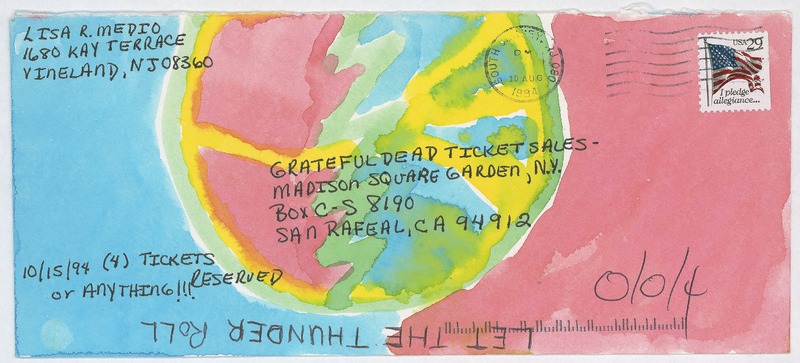 LISA R. MEDIO
1680 KAY TERRACE
VINELAND, NJ 08360
10 AUG
1994
USA 29
I pledge
allegiance...
GRATEFUL DEAD TICKET SALES-
MADISON SQUARE GARDEN, N.Y.
BOX C-S 8190
SAN RAFEAL, CA 94912
10/15/94 (4) TICKETS
or ANYTHING!!! RESERVED
0/0/4
LET THE THUNDER ROLL